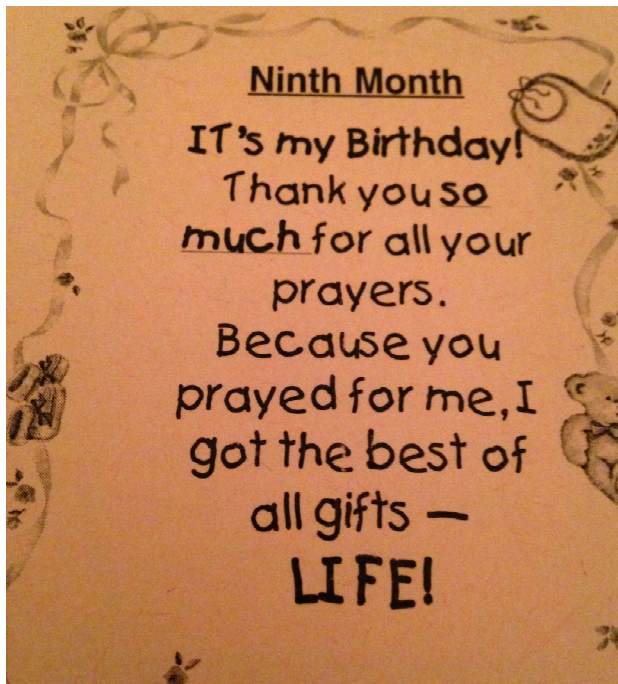 Ninth Month
IT's my Birthday!
Thank you so
much for all your
prayers.
Because you
prayed for me, I
got the best of
all gifts —
LIFE!